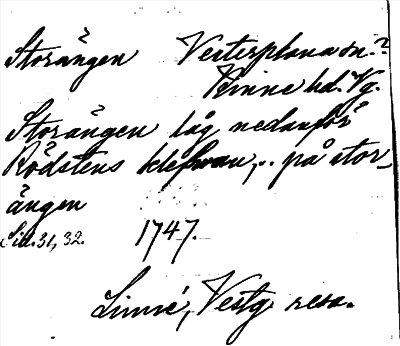 Storängen Vesterplana sn.?
Kinne hd. Vg.
Storängen låg nedanför
Rödstens klefwan,.. på stor-
ängen
Sid. 31, 32. 1747.
Linné, Vestg. resa.